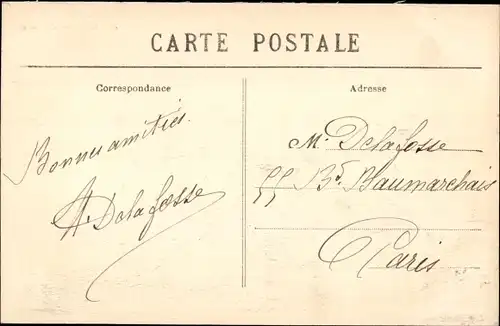 CARTE POSTALE
Correspondance
Bonnes amitiés.
A. Delafosse
Adresse
Mr Delafosse
55 Bd Baumarchais
Paris